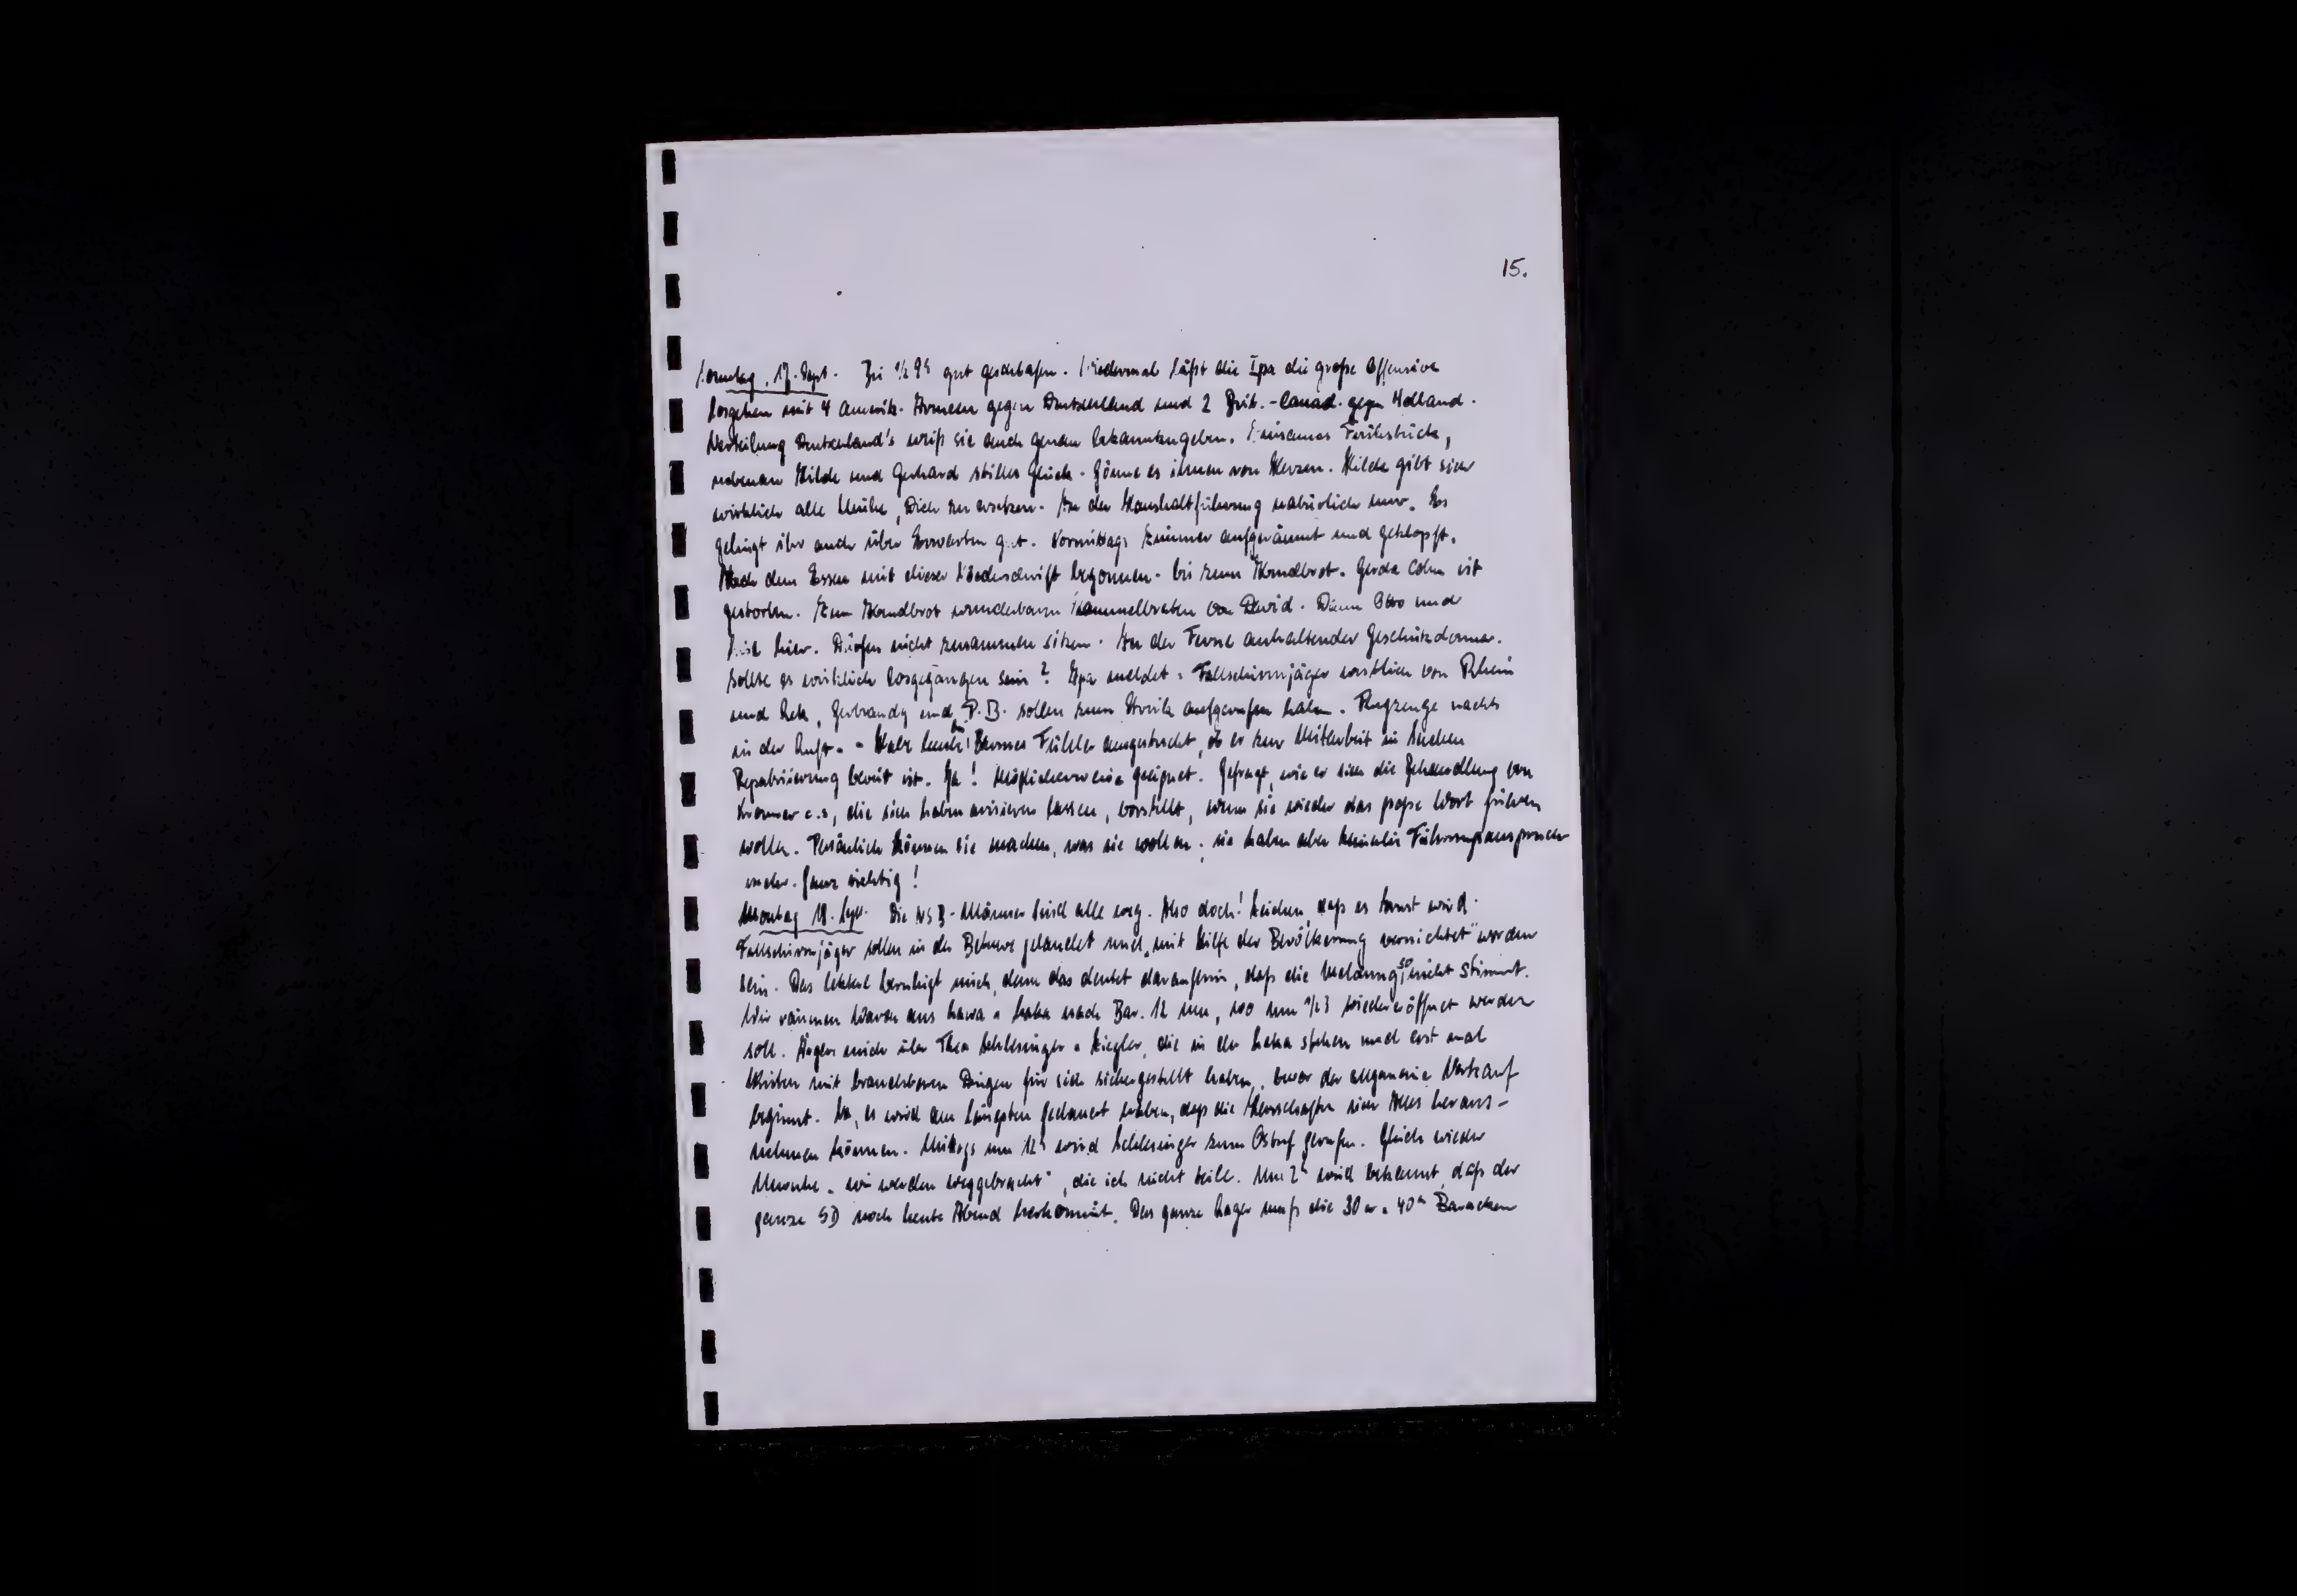 15.
Sonntag, 17. Sept. Bis 1/2 9h gut geschlafen. Wiedermal läßt die Ipa die große Offensive
losgehen mit 4 Amerik. Armeen gegen Deutschland und 2 Brit.-Canad. gegen Holland.
Verteilung Deutschland's weiß sie auch genau bekanntzugeben. Einsames Frühstück,
nebenan Hilde und Gerhard stilles Glück. Gönne es ihnen von Herzen. Hilde gibt sich
wirklich alle Mühe, Dich zu ersetzen. In der Haushaltführung natürlich nur. Es
gelingt ihr auch über Erwarten gut. Vormittags Zimmer aufgeräumt und geklopft.
Nach dem Essen mit dieser Niederschrift begonnen. bis zum Abendbrot. Gerda Cohn ist
gestorben. Zum Abendbrot wunderbaren Hammelbraten von David. Dann Otto und
hier. Dürfen nicht zusammen sitzen. In der Ferne anhaltender Geschützdonner.
Sollte es wirklich losgegangen sein? Ipa meldet: Fallschirmjäger westlich von Rhein
und Lek, Gerbrandy und P.B. sollen zum Streik aufgerufen haben. Flugzeuge nachts
in der Luft. - Habe heute Fühler ausgestreckt, ob er zur Mitarbeit in Sachen
Repatriierung bereit ist. Ja! Möglicherweise geeignet. Gefragt, wie er sich die Behandlung von
c.s, die sich haben arisieren lassen, vorstellt, wenn sie wieder das große Wort führen
wollen. Persönlich können sie machen, was sie wollen; sie haben aber keinerlei Führungsanspruch
mehr. Ganz richtig!
Montag 18. Sept. Die NSB-Männer sind alle weg. Also doch! Zeichen, daß es ernst wird.
Fallschirmjäger sollen in der Betuwe gelandet und „mit Hilfe der Bevölkerung vernichtet" worden
sein. Das letztere beruhigt mich, denn das deutet daraufhin, daß die Meldung so nicht stimmt.
Wir räumen Waren aus Lawa u. Laka nach Bar. 12 um, wo um 1/2 3 wiedereröffnet werden
soll. Ärgere mich über Thea Schlesinger u. Ziegler, die in der Laka stehen und erst mal
Kisten mit brauchbaren Dingen für sich sichergestellt haben, bevor der allgemeine Verkauf
beginnt. Na, es wird am längsten gedauert haben, daß die Herrschaften sich Alles heraus-
nehmen können. Mittags um 12h wird Schlesinger zum Ostuf gerufen. Gleich wieder
Unruhe „wir werden weggebracht", die ich nicht teile. Um 2h wird bekannt, daß der
ganze SD noch heute Abend herkommt. Das ganze Lager muß die 30er u. 40er Baracken